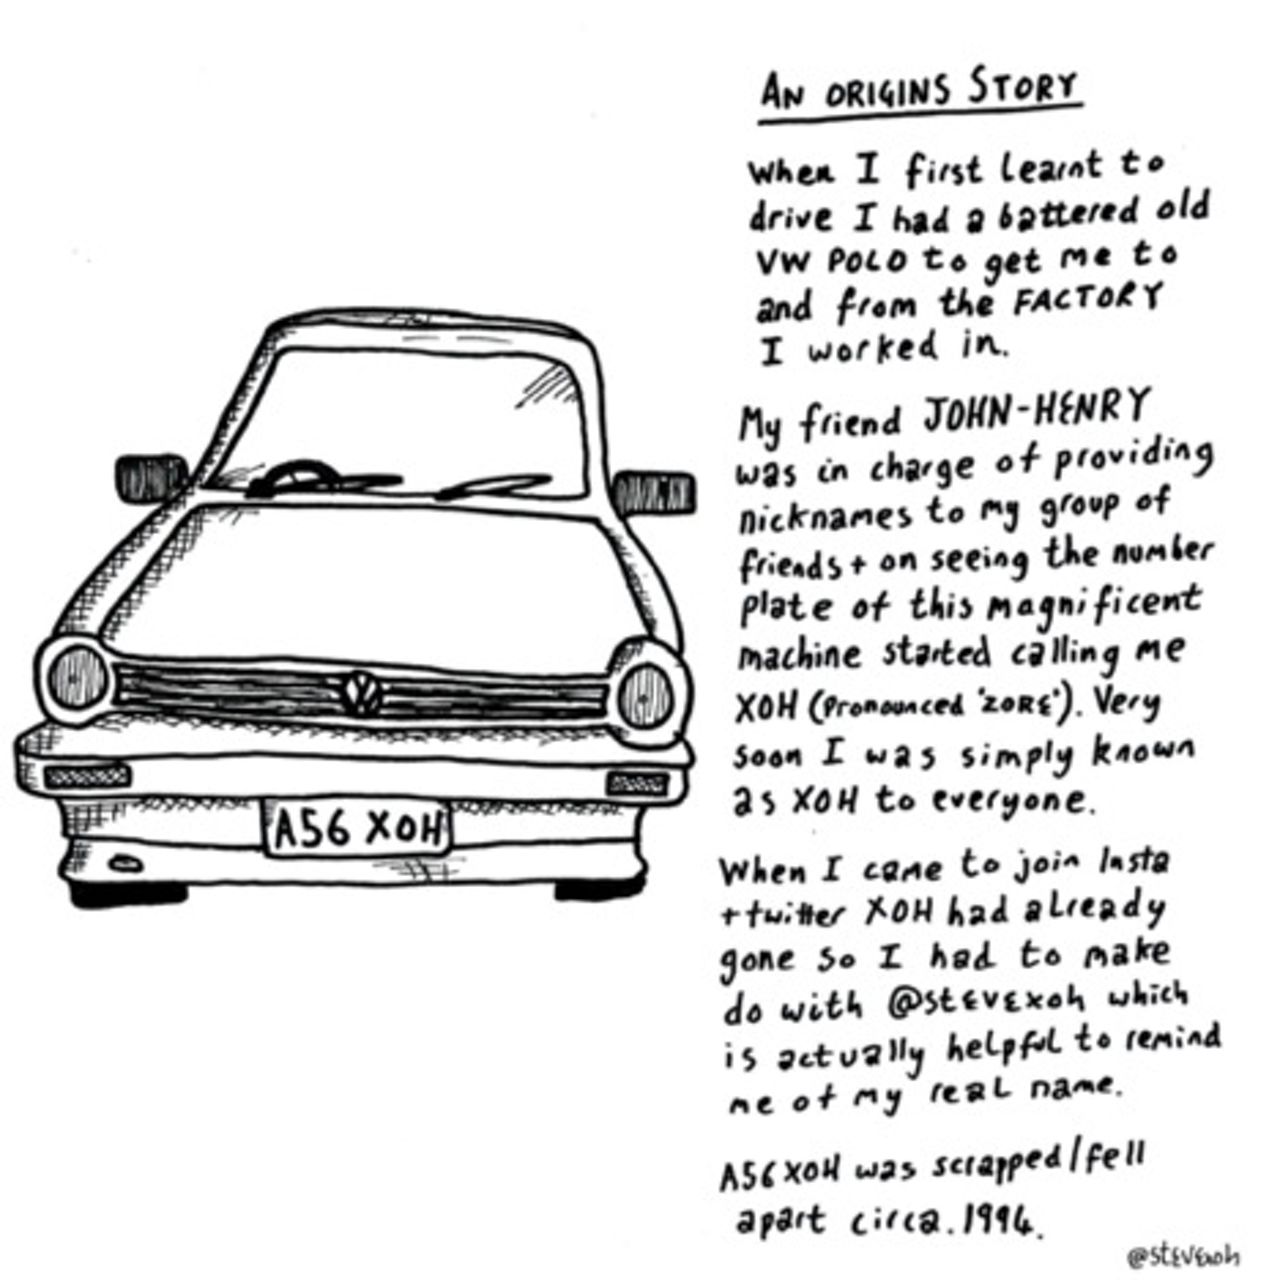 AN ORIGINS STORY
When I first learnt to
drive I had a battered old
VW POLO to get me to
and from the FACTORY
I worked in.
My friend JOHN-HENRY
was in charge of providing
nicknames to my group of
friends + on seeing the number
plate of this magnificent
machine started calling me
XOH (pronounced 'ZORE'). Very
soon I was simply known
as XOH to everyone.
When I came to join Insta
+ twitter XOH had already
gone so I had to make
do with @stevexoh which
is actually helpful to remind
me of my real name.
A56 XOH was scrapped/fell
apart circa. 1994.
@stevexoh
A56 XOH